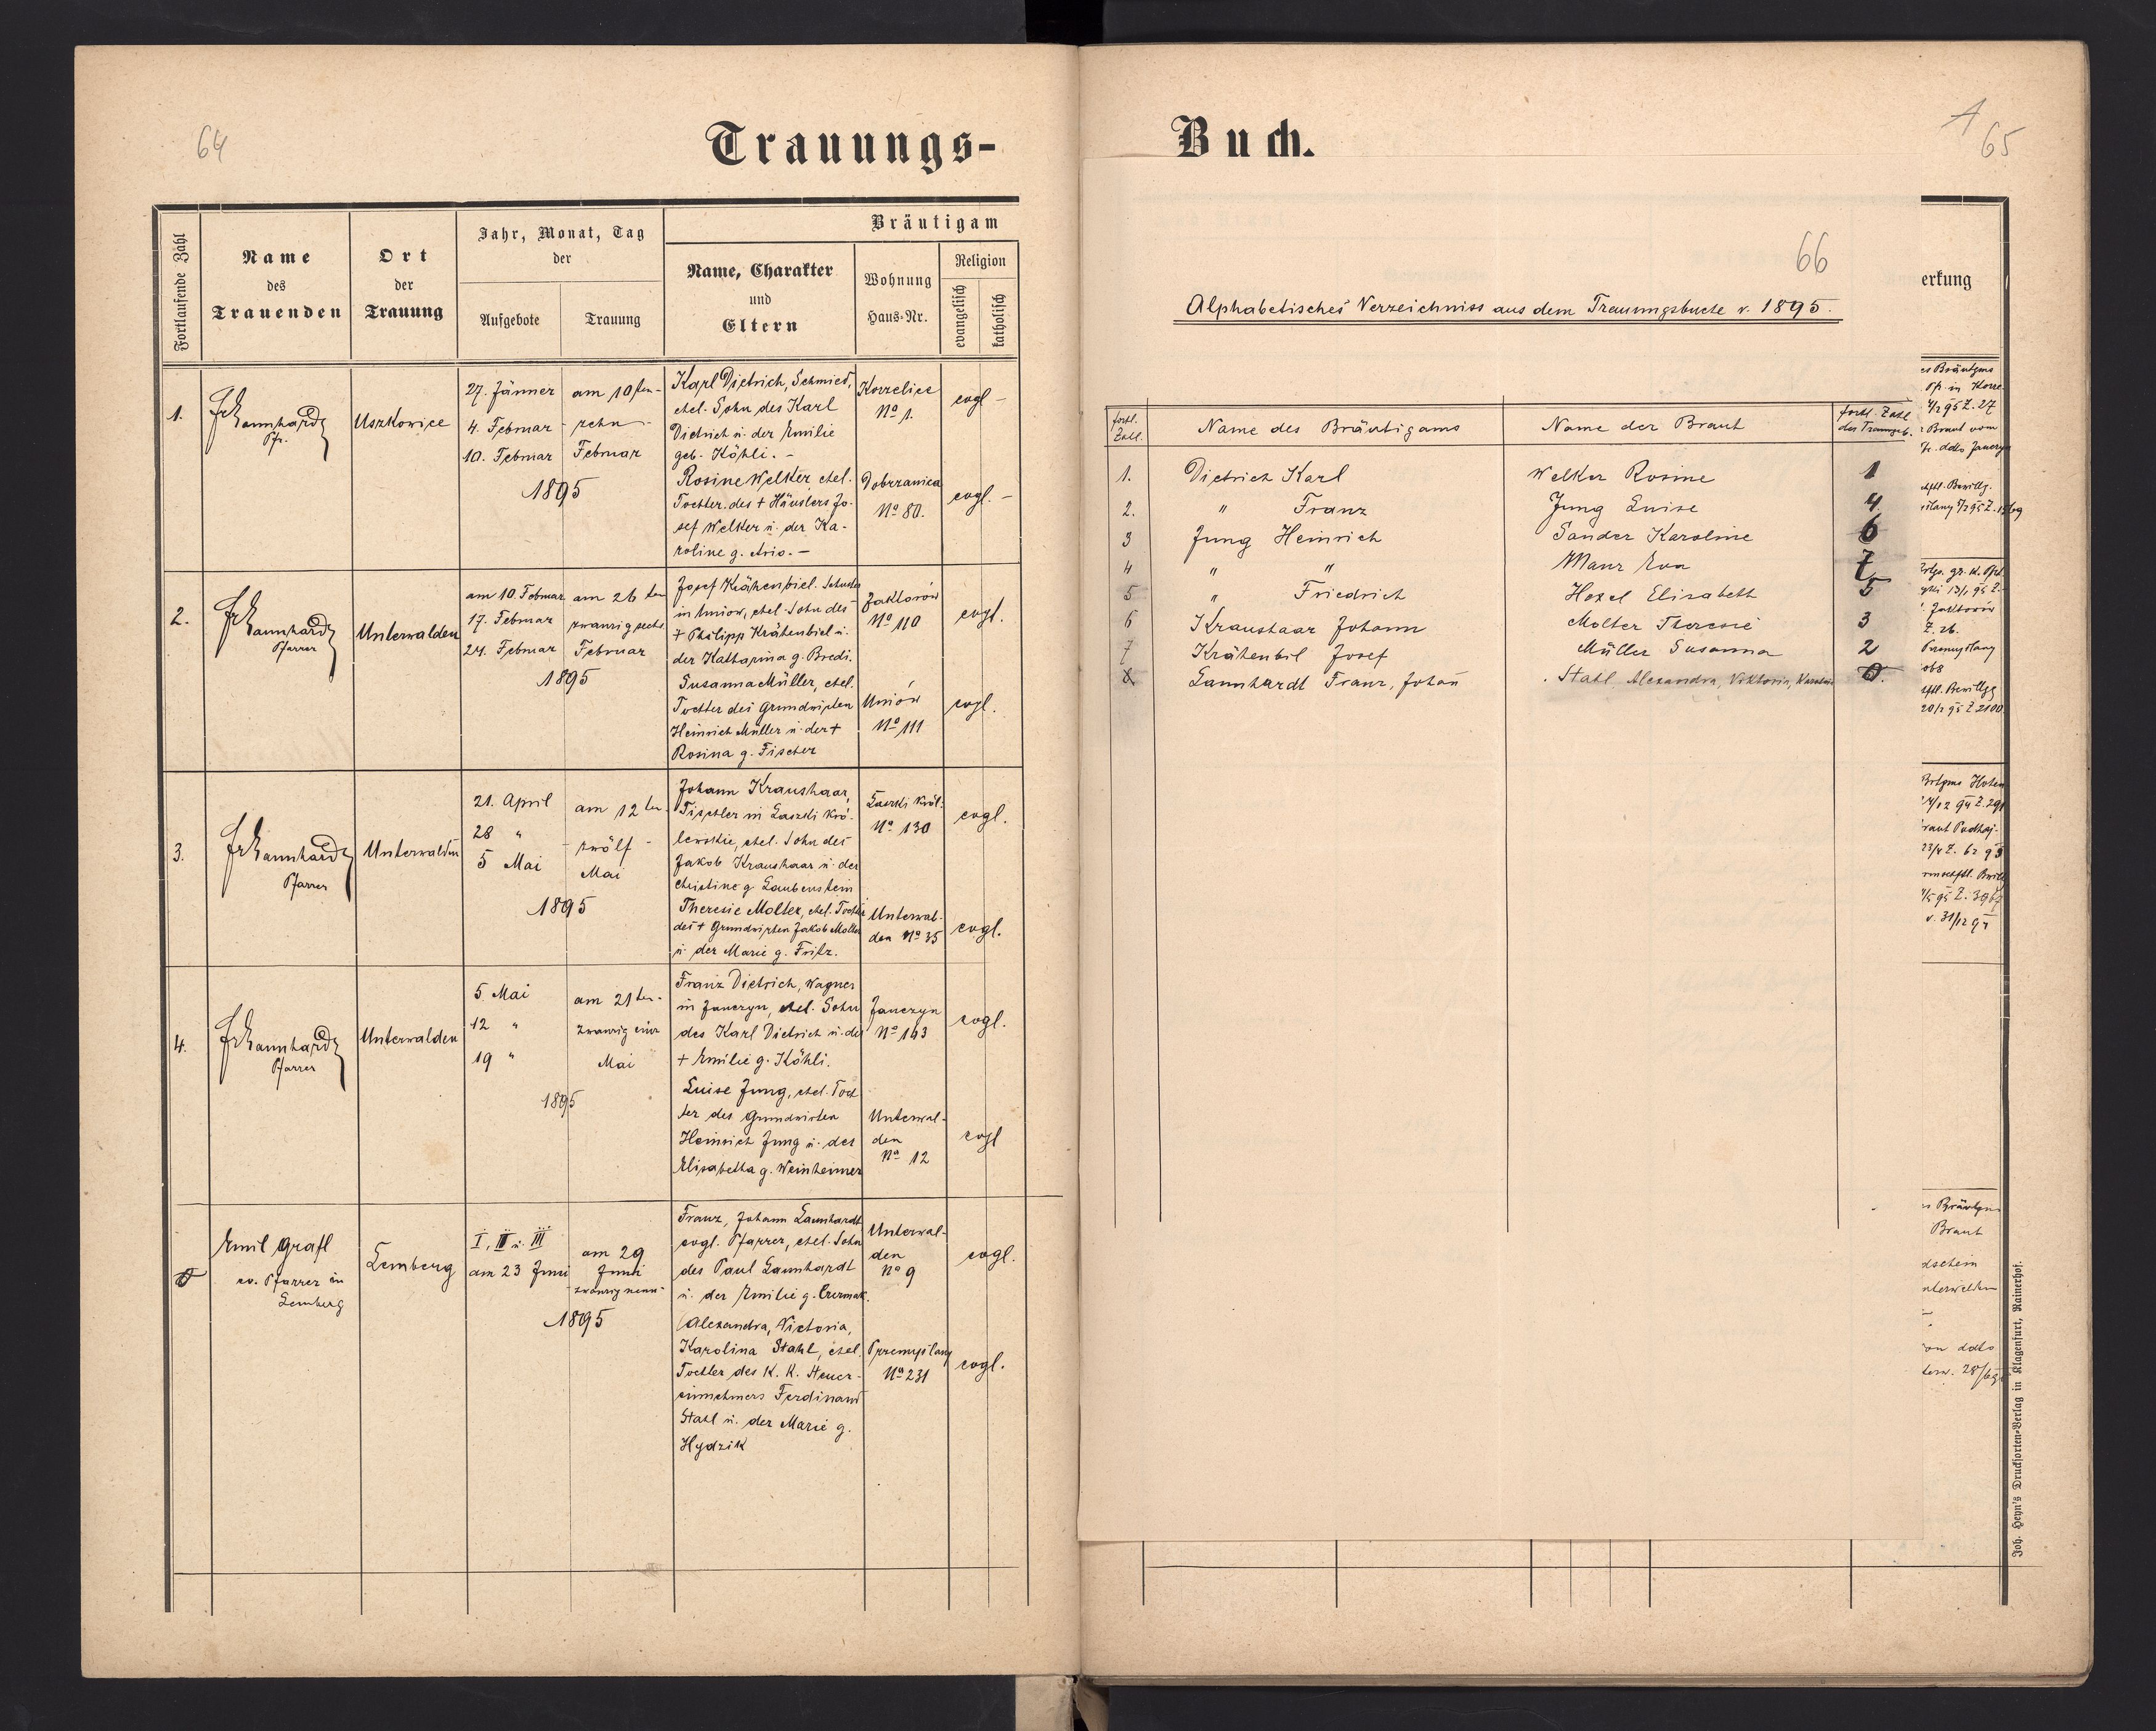 64
Trauungs-
Fortlaufende Zahl
Name
des
Trauenden
Ort
der
Trauung
Jahr, Monat, Tag
der
Aufgebote
Trauung
Bräutigam
Name, Charakter
und
Eltern
Wohnung
Haus-Nr.
Religion
evangelisch
katholisch
1.
Pfr.
Uszkowice
27. Jänner
4. Februar
10. Februar
am 10ten
zehn
Februar
1895
Karl Dietrich, Schmied,
ehel. Sohn des Karl
Dietrich u. der Emilie
geb. Köhli. -
Korzelice
No 1.
evgl -
Rosine Welker ehel.
Tochter des + Häuslers Jo-
sef Welker u. der Ka-
roline g.
Dobrzanica
No 80.
evgl. -
2.
Pfarrer
Unterwalden
am 10. Februar
17. Februar
24. Februar
am 26 ten
zwanzigsechs
Februar
1895
Josef Krähenbiel. Schuster
in Uniow, ehel. Sohn des
+ Philipp Krähenbiel u.
der Katharina g. Bredi.
Zaktorów
No 110
evgl.
Susanna Müller, ehel.
Tochter des Grundwirten
Heinrich Müller u. der +
Rosina g. Fischer
Uniów
No 111
evgl.
3.
Pfarrer
Unterwalden
21. April
28 "
5 Mai
am 12 ten
zwölf -
Mai
1895
Johann Kraushaar,
Tischler in Laszki kró-
lewskie, ehel. Sohn des
Jakob Kraushaar u. der
Christine g Laubenstein
Laszki król.
No 130
evgl.
Theresie Molter, ehel. Tochter
des + Grundwirten Jakob Molter
u. der Marie g. Fritz.
Unterwal-
den No 35
evgl.
4.
Pfarrer
Unterwalden
5 Mai
12 "
19 "
am 21ten.
zwanzig eins
Mai
1895
Franz Dietrich, Wagner
in Janczyn, ehel. Sohn
des Karl Dietrich u. der
+ Emilie g. Köhli.
Janczyn
No 143
evgl.
Luise Jung, ehel. Toch
ter des Grundwirten
Heinrich Jung u. der
Elisabetha g. Weinheimer
Unterwal-
den
No 12
evgl
Emil Grafl
ev. Pfarrer in
Lemberg
Lemberg
I, II u. III
am 23 Juni
am 29
Juni
zwanzig neun
1895
Franz, Johann Launhardt
evgl. Pfarrer, ehel. Sohn
des Paul Launhardt
u. der Emilie g. Czermak.
Unterwal-
den
No 9
evgl.
Alexandra, Victoria,
Karolina Stahl, ehel.
Tochter des K. K. Steuer-
einnehmers Ferdinand
Stahl u. der Marie g.
Hydzik
Przemyślany
No 231
evgl.
Buch.
1
65
66
Alphabetisches Verzeichniss aus dem Trauungsbuche v. 1895.
fortl. Zahl.
Name des Bräutigams
Name der Braut
fortl. Zahl
des Trauungsb.
1. Dietrich Karl Welker Rosine 1
2. " Franz Jung Luise 4
3 Jung Heinrich Sander Karoline 6
4 " " Manz Eva 7
5 " Friedrich Hexel Elisabeth 5
6 Kraushaar Johann Molter Theresie 3
7 Krähenbil Josef Müller Susanna 2
8 Launhardt Franz, Johan Stahl Alexandra, Viktoria, Karoline
erkung
es Bräutgms
Pfr. in Korze-
4/2 95 Z. 27
Braut vom
ddto Janczyn
Bewillg.
ślany
gr. K. Pfr.
13/1 95 Z.
Zaktorów
Z. 26.
Przemyślany
Bewillgg
20/2 95 Z 2100
Z. 291
raut Podhaj-
23/4 Z. 62 95
Z. 3967
v. 31/12 94
s Bräutgms
Braut
dschein
nterwalden
on ddto
28/6 95
Joh. Heyn's Drucksorten-Verlag in Klagenfurt, Rainerhof.